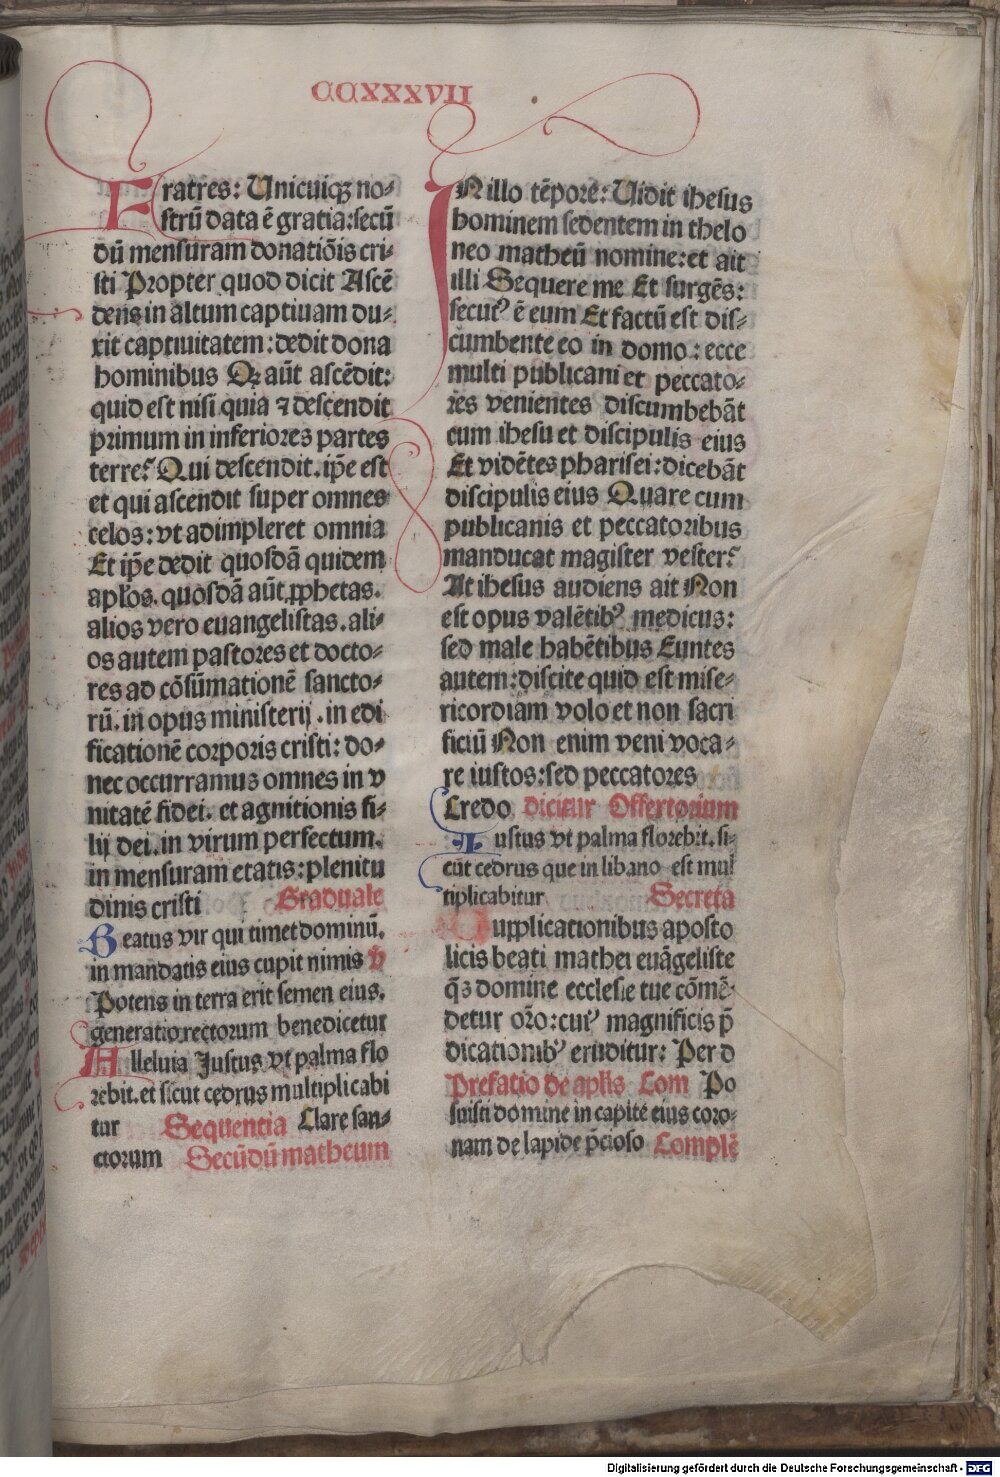 CCXXXVII
Fratres: Unicuiqꝫ no⸗
strū data ē gratia: secū
dū mensuram donatiōis cri⸗
sti Propter quod dicit Ascē
dens in altum captiuam du⸗
xit captiuitatem: dedit dona
hominibus Qꝫ aūt ascēdit:
quid est nisi quia ⁊ descendit
primum in inferiores partes
terre? Qui descendit. ip̄e est
et qui ascendit super omnes
celos: vt adimpleret omnia
Et ip̄e dedit quosdā quidem
apl̄os. quosdā aūt ꝓphetas.
alios vero euangelistas. ali⸗
os autem pastores et docto⸗
res ad cōsūmationē sancto⸗
rū. in opus ministerij. in edi
ficationē corporis cristi: do⸗
nec occurramus omnes in v
nitatē fidei. et agnitionis fi⸗
lij dei. in virum perfectum.
in mensuram etatis: plenitu
dinis cristi Graduale
Beatus vir qui timet dominū.
in mandatis eius cupit nimis ꝟ
Potens in terra erit semen eius.
generatio rectorum benedicetur
Alleluia Justus vt palma flo
rebit. et sicut cedrus multiplicabi
tur Sequentia Clare san⸗
ctorum Secūdū matheum
IN illo tēpore: Uidit ihesus
hominem sedentem in thelo
neo matheū nomine: et ait
illi Sequere me Et surgēs:
secutꝰ ē eum Et factū est dis⸗
cumbente eo in domo: ecce
multi publicani et peccato⸗
res venientes discumbebāt
cum ihesu et discipulis eius
Et vidētes pharisei: dicebāt
discipulis eius Quare cum
publicanis et peccatoribus
manducat magister vester?
At ihesus audiens ait Non
est opus valētibꝰ medicus:
sed male habētibus Euntes
autem: discite quid est mise⸗
ricordiam volo et non sacri
ficiū Non enim veni voca⸗
re iustos: sed peccatores
Credo dicitur Offertorium
Iustus vt palma florebit. si⸗
cut cedrus que in libano est mul
tiplicabitur Secreta
Supplicationibus aposto
licis beati mathei euāgeliste
q̄s domine ecclesie tue cōmē⸗
detur or̄o: cuiꝰ magnificis p̄
dicationibꝰ eruditur: Per d
Prefatio de apl̄is Com Po
suisti domine in capite eius coro⸗
nam de lapide p̄cioso Complē
Digitalisierung gefördert durch die Deutsche Forschungsgemeinschaft - DFG